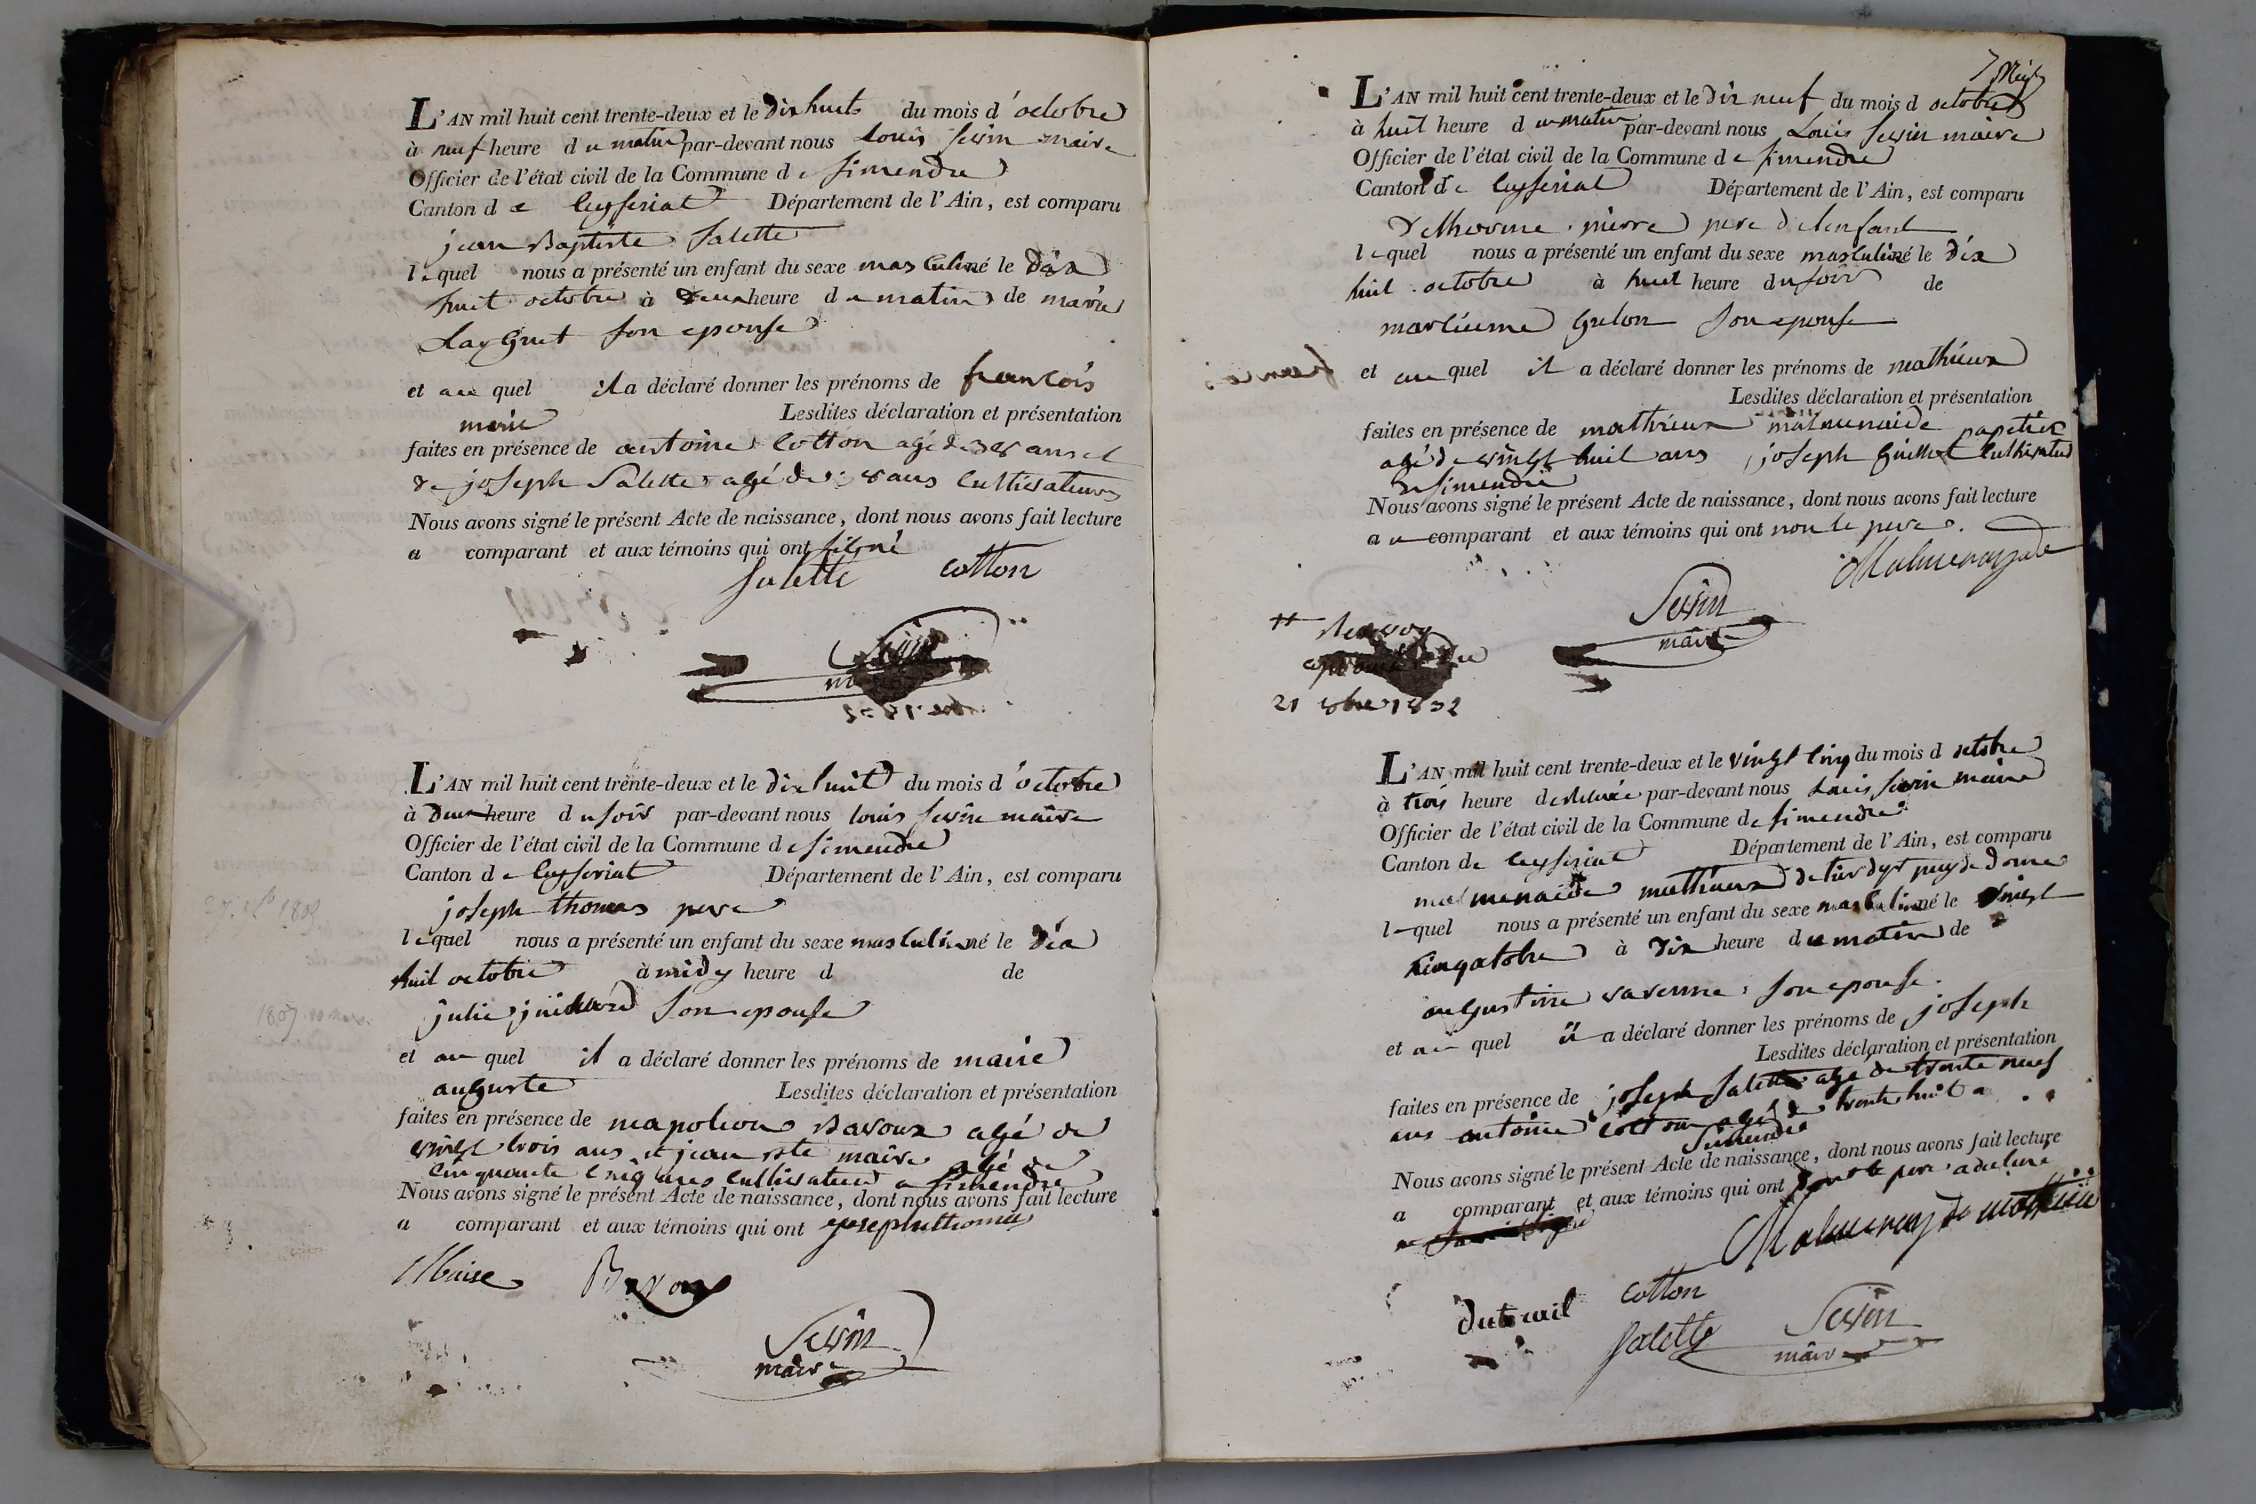 L'AN mil huit cent trente-deux et le dix huit du mois d'octobre
à neuf heure du matin par-devant nous Louis Sevin maire
Officier de l'état civil de la Commune de Simendre
Canton de Ceyseriat Département de l'Ain, est comparu
jean Baptiste Salette
lequel nous a présenté un enfant du sexe masculin né le dix
huit octobre à deux heure du matin de marie
son epouse
et au quel il a déclaré donner les prénoms de francois
marie Lesdites déclaration et présentation
faites en présence de antoine Cotton agé de 38 ans et
de joseph Salette agé de ans Cultivateurs
Nous avons signé le présent Acte de naissance, dont nous avons fait lecture
a comparant et aux témoins qui ont signé
Salette Cotton
L'AN mil huit cent trente-deux et le dix huit du mois d'octobre
à deux heure du soir par-devant nous louis Sevin maire
Officier de l'état civil de la Commune de Simendre
Canton de Ceyseriat Département de l'Ain, est comparu
joseph thomas pere
lequel nous a présenté un enfant du sexe masculin né le dix
huit octobre à midy heure d de
julie son epouse
et au quel il a déclaré donner les prénoms de marie
auguste Lesdites déclaration et présentation
faites en présence de napoleon Bavoux agé de
vingt trois ans et jean bte maire agé de
cinquante cinq ans Cultivateur a Simendre
Nous avons signé le présent Acte de naissance, dont nous avons fait lecture
a comparant et aux témoins qui ont joseph thomas
Maire Bavoux
Sevin
maire
L'AN mil huit cent trente-deux et le dix neuf du mois d octobre
à huit heure du matin par-devant nous Louis Sevin maire
Officier de l'état civil de la Commune de Simendre
Canton de Ceyseriat Département de l'Ain, est comparu
pierre pere de lenfant
lequel nous a présenté un enfant du sexe masculin né le dix
huit octobre à huit heure du soir de
son epouse
et au quel il a déclaré donner les prénoms de mathieux
Lesdites déclaration et présentation
faites en présence de mathieux malmenaide papetier
agé de vingt huit ans joseph Guillot Cultivateur
a Simendre
Nous avons signé le présent Acte de naissance, dont nous avons fait lecture
au comparant et aux témoins qui ont non le pere.
Malmenayde
Sevin
maire
21 8bre 1832
L'AN mil huit cent trente-deux et le vingt cinq du mois d octobre
à trois heure par-devant nous Louis Sevin maire
Officier de l'état civil de la Commune de Simendre
Canton de Ceyseriat Département de l'Ain, est comparu
malmenaide mathieux puy de dome
lequel nous a présenté un enfant du sexe masculin né le vingt
cinq octobre à dix heure du matin de
augustine varenne son epouse
et au quel il a déclaré donner les prénoms de joseph
Lesdites déclaration et présentation
faites en présence de joseph Salette agé de trente neuf
ans antoine Cotton agé de trente huit a
Simendre
Nous avons signé le présent Acte de naissance, dont nous avons fait lecture
a comparant et aux témoins qui ont
Malmenayde mathieu
duteuil Cotton
Salette Sevin
maire